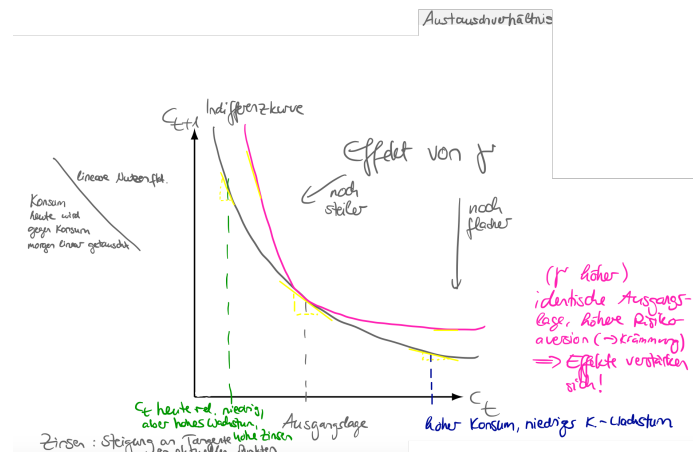 Austauschverhältnis
Indifferenzkurve
C_t+1
Effekt von γ
lineare Nutzenfkt.
Konsum
heute wird
gegen Konsum
morgen linear getauscht
noch
steiler
noch
flacher
(γ höher)
identische Ausgangs-
lage, höhere Risiko-
aversion (→ Krümmung)
⇒ Effekte verstärken
sich!
C_t
C_t heute rel. niedrig,
aber hohes Wachstum,
hohe Zinsen
Ausgangslage
hoher Konsum, niedriges K.-Wachstum
Zinsen : Steigung an Tangente